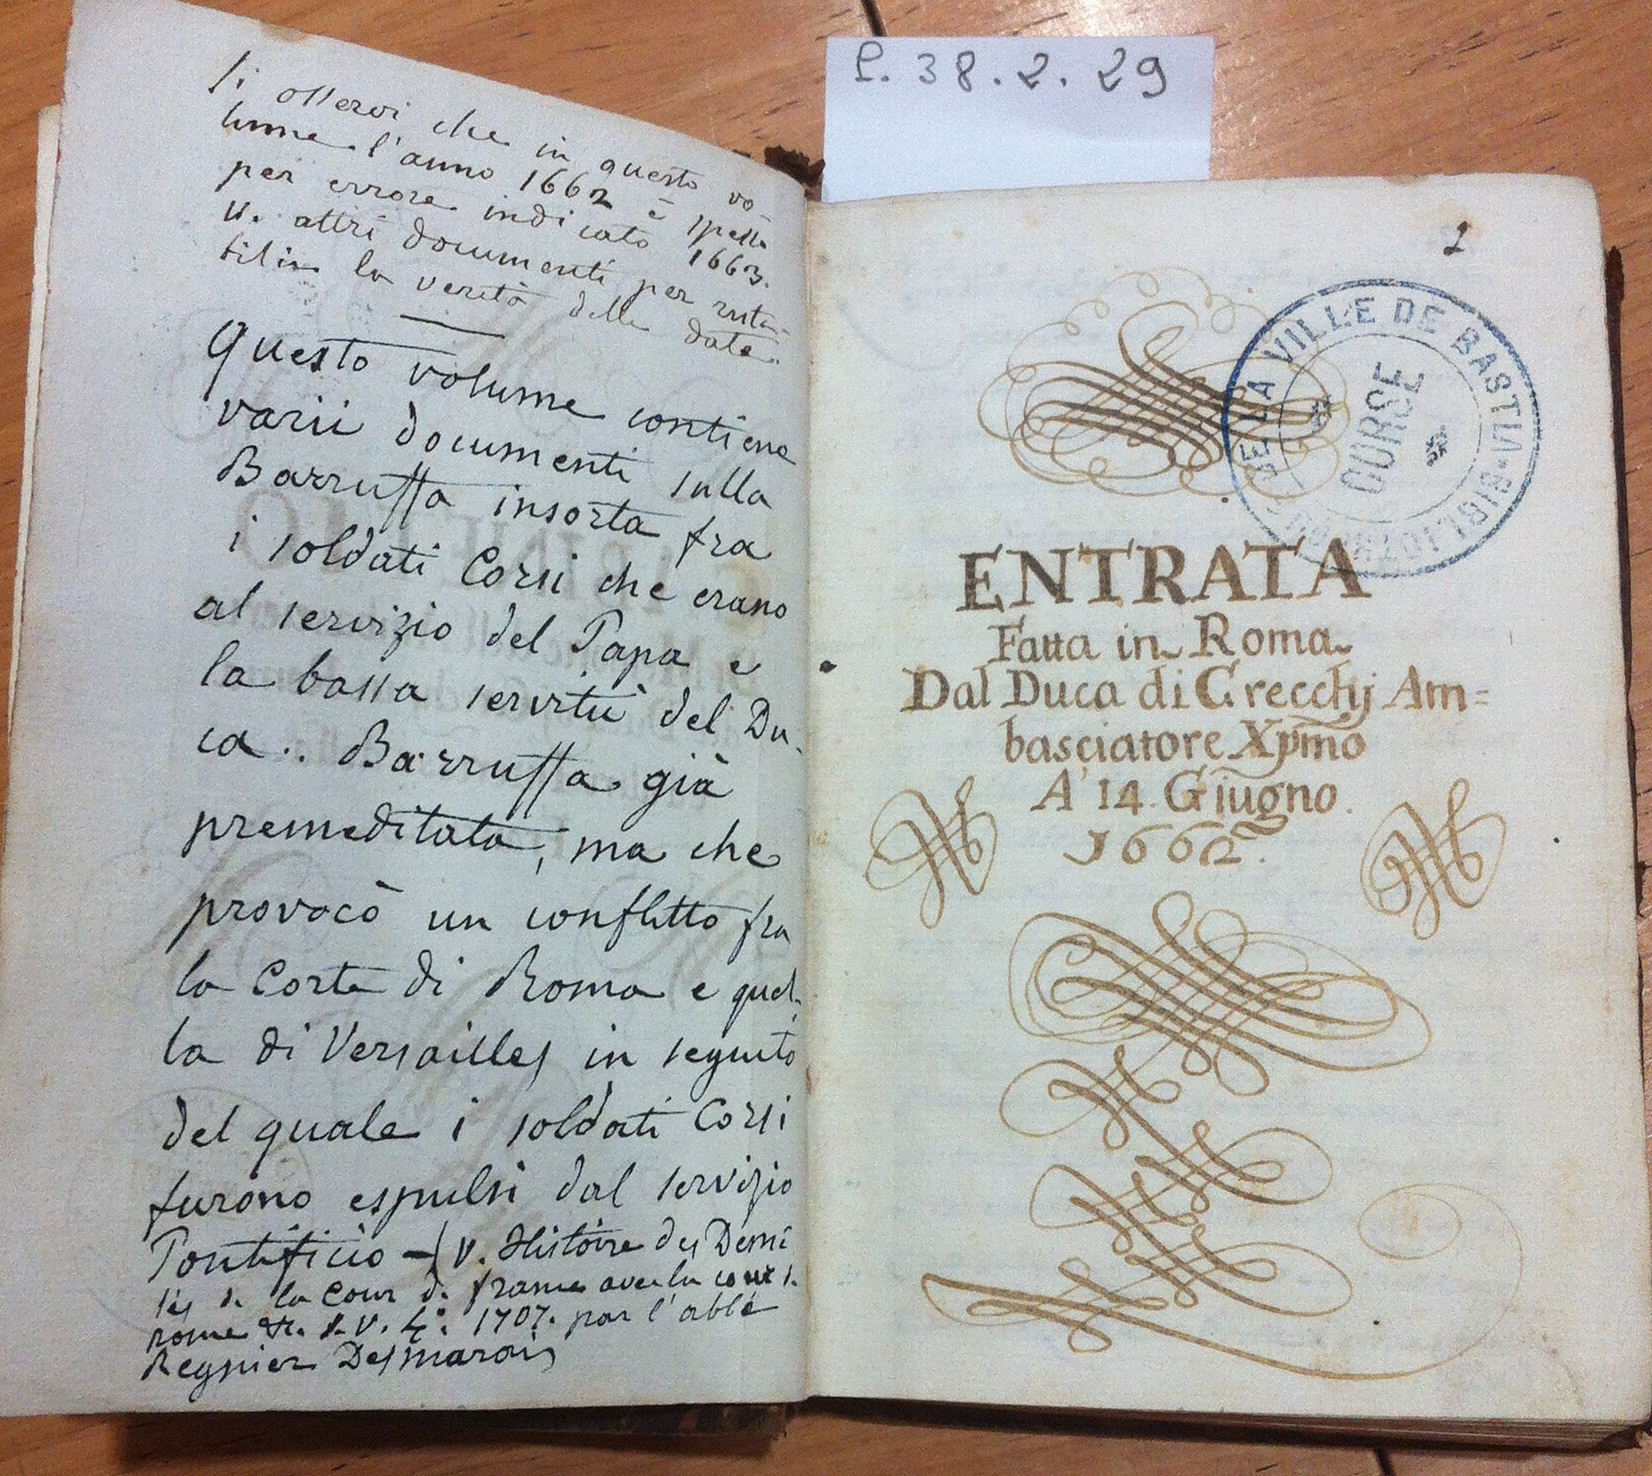 Si osservi che in questo vo-
lume l'anno 1662 è spesso
per errore indicato 1663.
V. altri documenti per ista-
bilire la verità delle date.
Questo volume contiene
varii documenti sulla
Barruffa insorta fra
i soldati Corsi che erano
al servizio del Papa e
la bassa servitù del Du-
ca. Barruffa già
premeditata, ma che
provocò un conflitto fra
la Corte di Roma e quel-
la di Versailles in seguito
del quale i soldati Corsi
furono espulsi dal servizio
Pontificio — (V. Histoire des Demê
lés de la Cour de france avec la cour de
rome 4°. 1707. par l'abbé
Regnier Desmarais
P. 38. 2. 29
1
BIBLIOTHEQUE DE LA VILLE DE BASTIA
CORSE
ENTRATA
Fatta in Roma
Dal Duca di Crecchj Am=
basciatore Xpmo
A' 14 Giugno
1662.